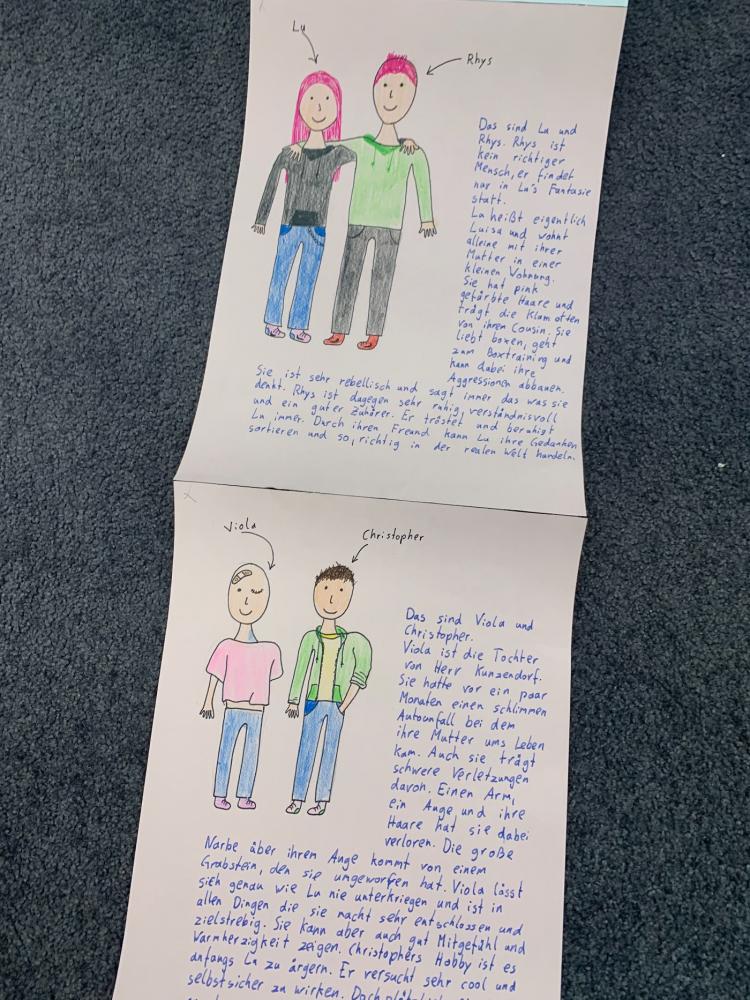 Lu
Rhys
Das sind Lu und
Rhys. Rhys ist
kein richtiger
Mensch, er findet
nur in Lu's Fantasie
statt.
Lu heißt eigentlich
Luisa und wohnt
alleine mit ihrer
Mutter in einer
kleinen Wohnung.
Sie hat pink
gefärbte Haare und
trägt die Klamotten
von ihren Cousin. Sie
liebt boxen, geht
zum Boxtraining und
kann dabei ihre
Aggressionen abbauen.
Sie ist sehr rebellisch und sagt immer das was sie
denkt. Rhys ist dagegen sehr ruhig, verständnisvoll
und ein guter Zuhörer. Er tröstet und beruhigt
Lu immer. Durch ihren Freund kann Lu ihre Gedanken
sortieren und so, richtig in der realen Welt handeln.
Viola
Christopher
Das sind Viola und
Christopher.
Viola ist die Tochter
von Herr Kunzendorf.
Sie hatte vor ein paar
Monaten einen schlimmen
Autounfall bei dem
ihre Mutter ums Leben
kam. Auch sie trägt
schwere Verletzungen
davon. Einen Arm,
ein Auge und ihre
Haare hat sie dabei
verloren. Die große
Narbe über ihrem Auge kommt von einem
Grabstein, den sie umgeworfen hat. Viola lässt
sich genau wie Lu nie unterkriegen und ist in
allen Dingen die sie macht sehr entschlossen und
zielstrebig. Sie kann aber auch gut Mitgefühl und
Warmherzigkeit zeigen. Christophers Hobby ist es
anfangs Lu zu ärgern. Er versucht sehr cool und
selbstsicher zu wirken. Doch